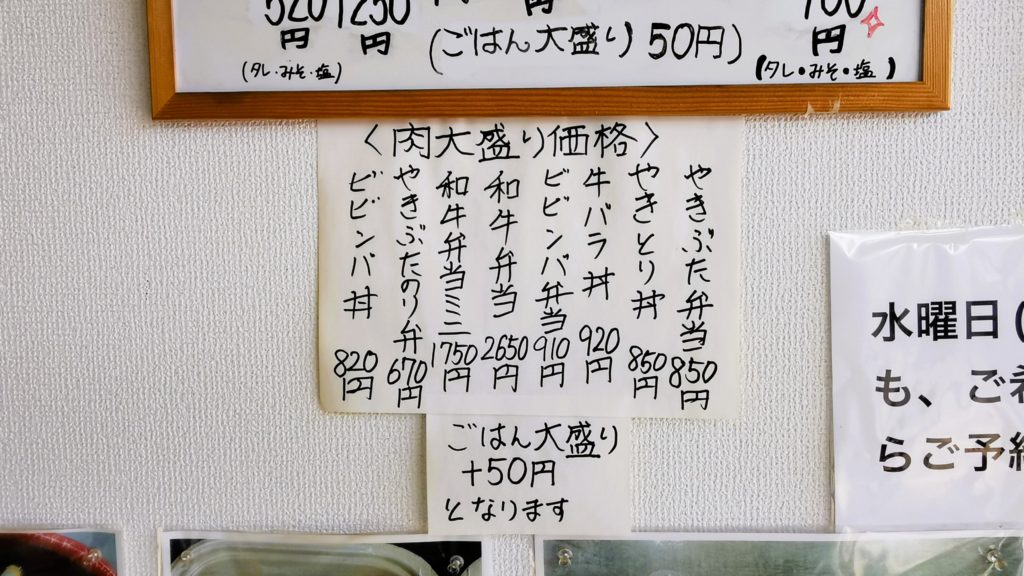 520 1250
円 円 円
(タレ・みそ・塩)
(ごはん大盛り 50円)
円
(タレ・みそ・塩)
〈肉大盛り価格〉
やきぶた弁当 850円
やきとり丼 850円
牛バラ丼 920円
ビビンバ弁当 910円
和牛弁当 2650円
和牛弁当ミニ 1750円
やきぶたのり弁 670円
ビビンバ丼 820円
ごはん大盛り
+50円
となります
水曜日(
も、ご
らご予